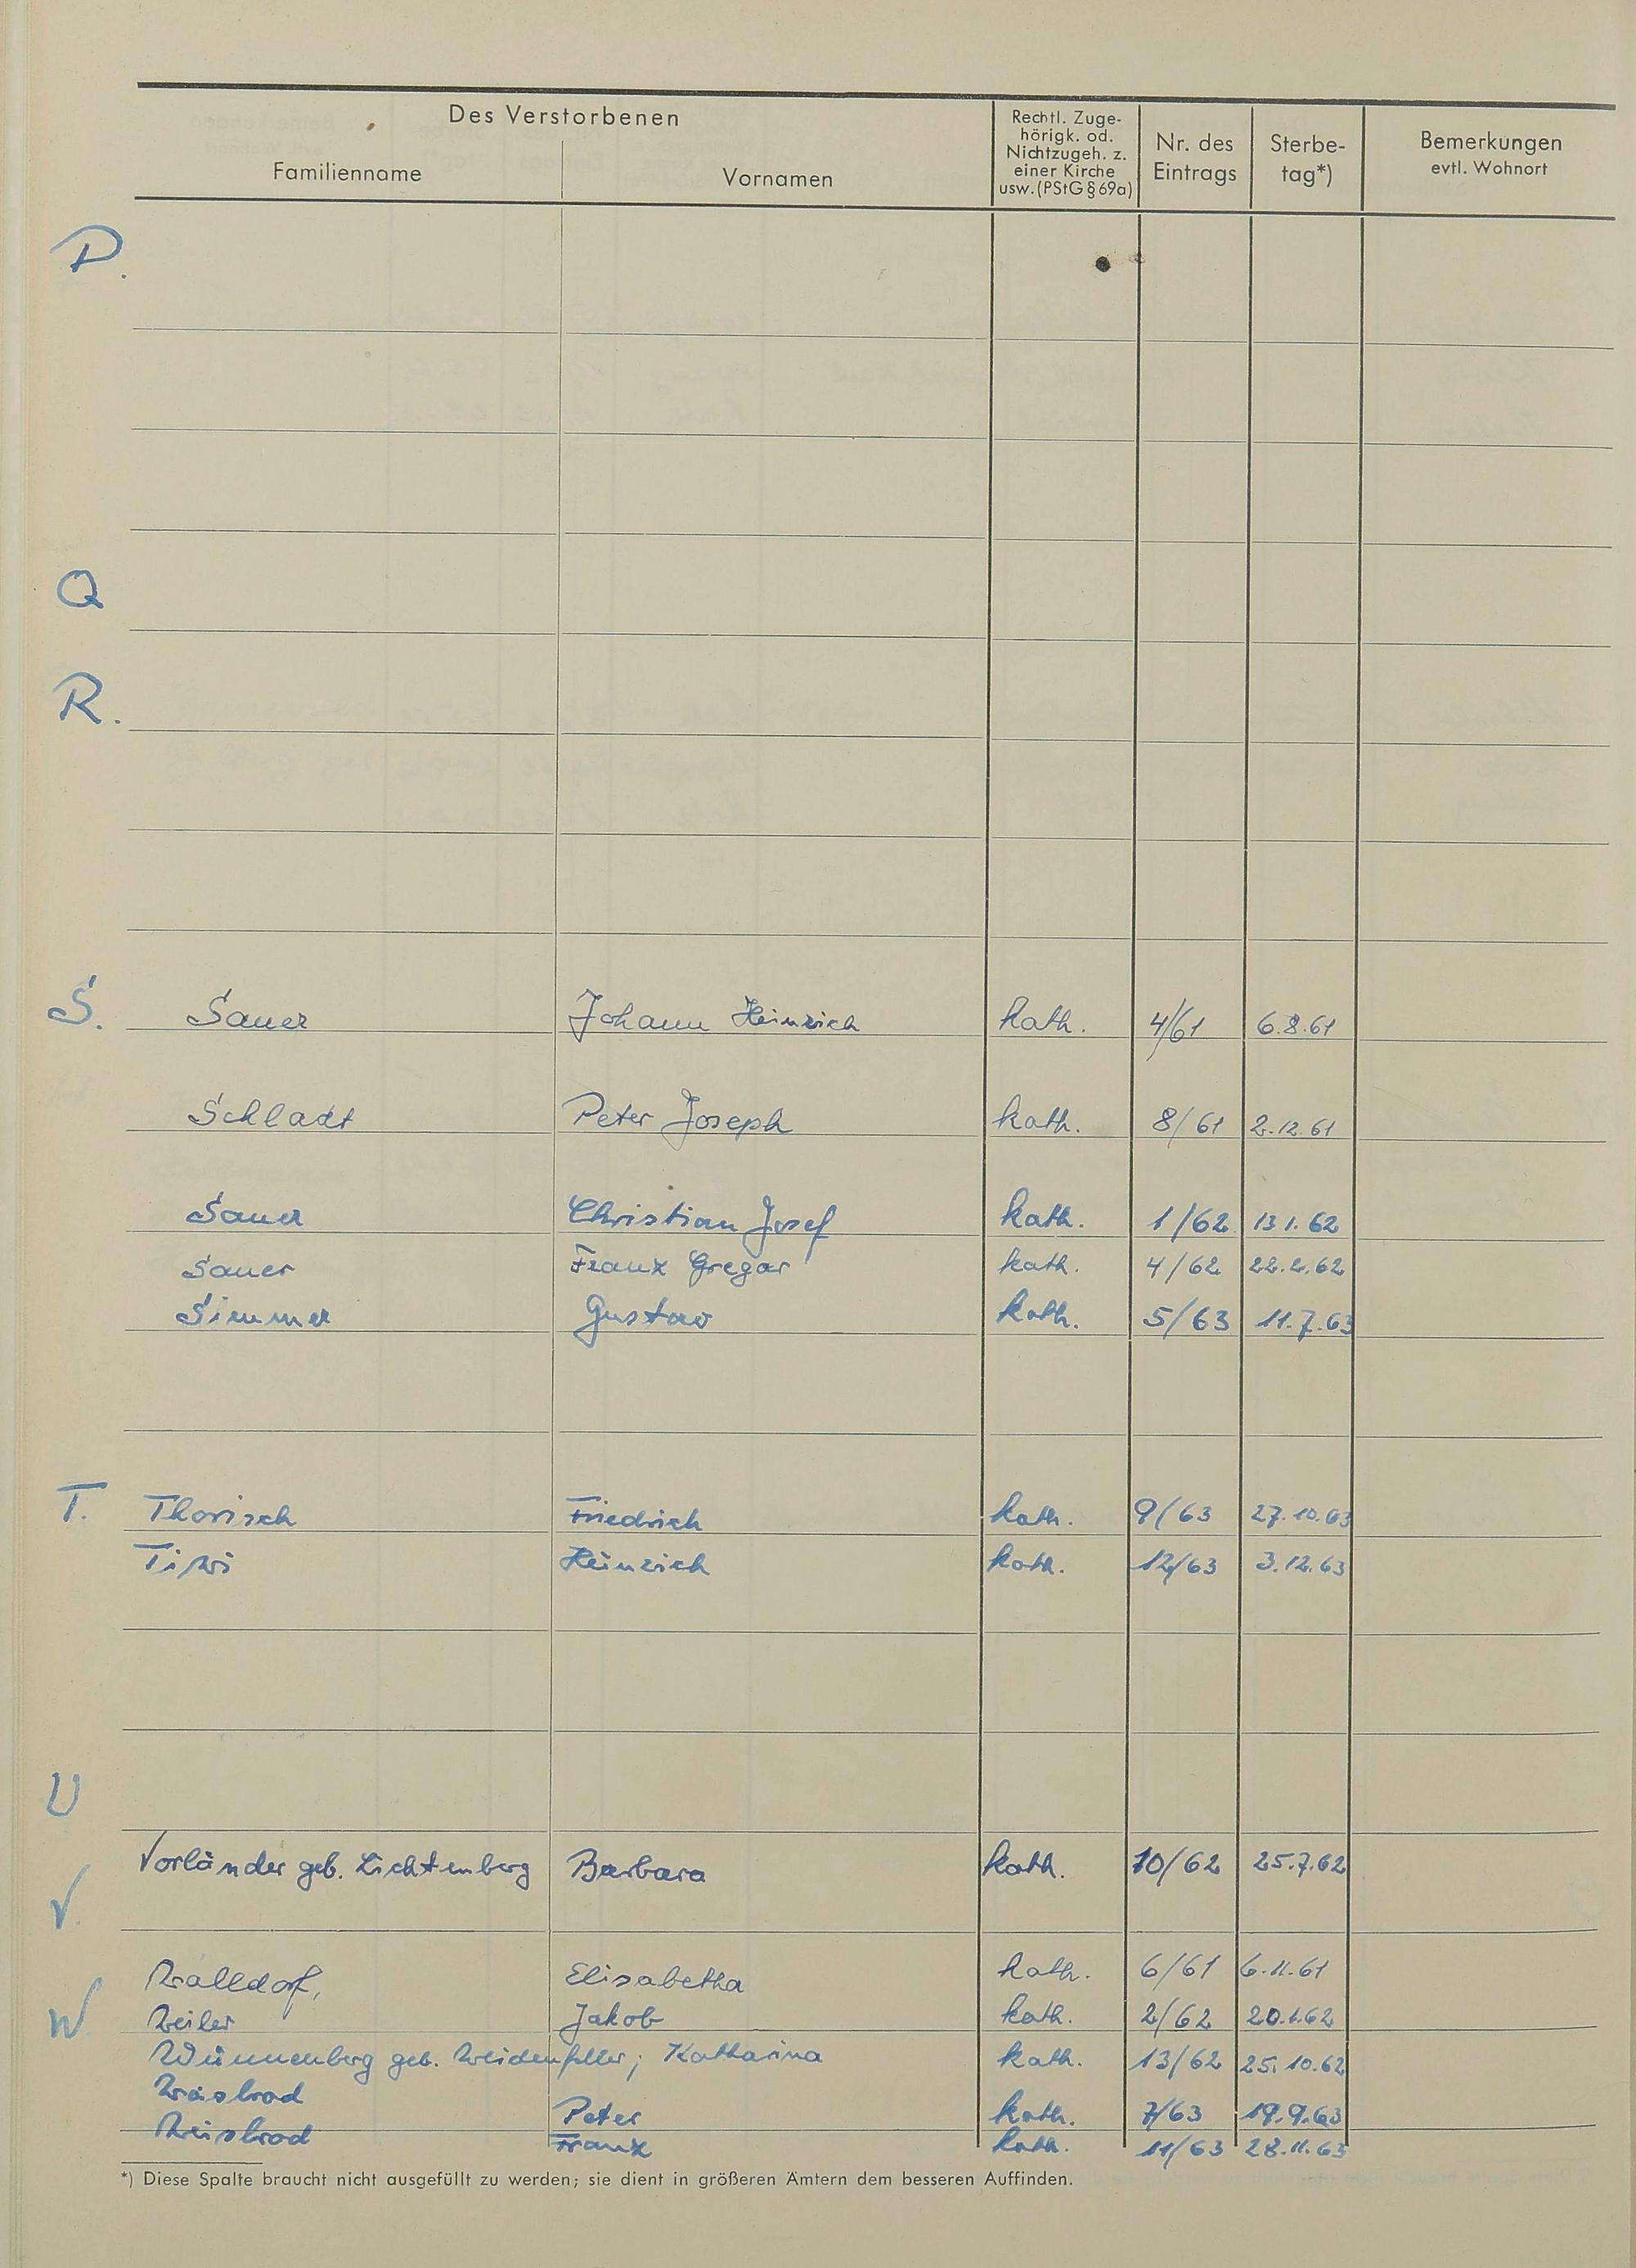 Des Verstorbenen
Familienname
Vornamen
Rechtl. Zuge-
hörigk. od.
Nichtzugeh. z.
einer Kirche
usw. (PStG § 69a)
Nr. des
Eintrags
Sterbe-
tag*)
Bemerkungen
evtl. Wohnort
P.
Q
R.
S. Sauer Johann Heinrich kath. 4/61 6.8.61
Schladt Peter Joseph kath. 8/61 2.12.61
Sauer Christian Josef kath. 1/62 13 1. 62
Sauer Franz Gregor kath. 4/62 22.2.62
Simmer Gustav kath. 5/63 11.7.63
T. Thorisch Friedrich kath. 9/63 27.10.63
Heinrich kath. 12/63 3.12.63
U
Vorländer geb. Lichtenberg Barbara kath. 10/62 25.7.62
V.
Walldorf, Elisabetha kath. 6/61 6.11.61
W. Weiler Jakob kath. 2/62 20.1.62
Wünnenberg geb. Weidenfeller; Katharina kath. 13/62 25.10.62
Peter kath. 7/63 19.9.63
Weisbrod Franz kath. 11/63 28.11.63
*) Diese Spalte braucht nicht ausgefüllt zu werden; sie dient in größeren Ämtern dem besseren Auffinden.